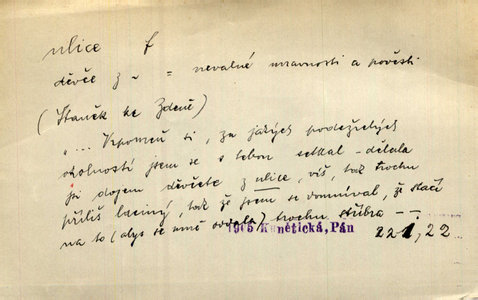 ulice f
děvče z ~ = nevalné mravnosti a pověsti
(Staněk ke Zdeně)
"... Vzpomeň si, za jakých podezřelých
okolností jsem se s tebou setkal – dělala
jsi dojem děvčete z ulice, víš, tak trochu
příliš laciný, tak že jsem se domníval, že stačí
na to (abys se mně oddala) trochu stříbra – –.
1905 Kunětická, Pán 221,22